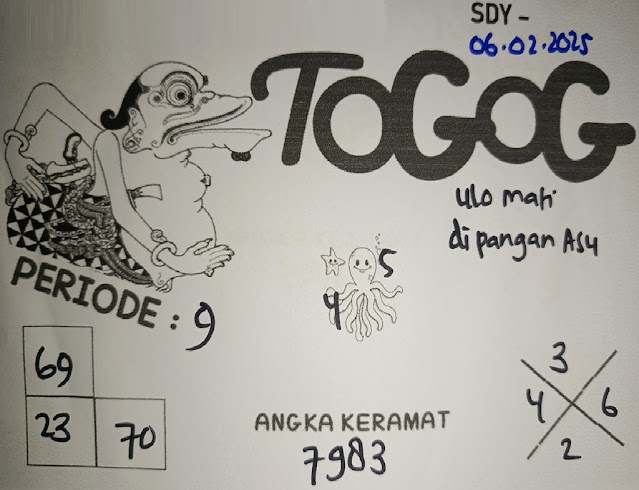 SDY -
06.02.2025
TOGOG
ulo mati
dipangan Asu
5
4
PERIODE : 9
69
23 70
3
4 6
2
ANGKA KERAMAT
7983